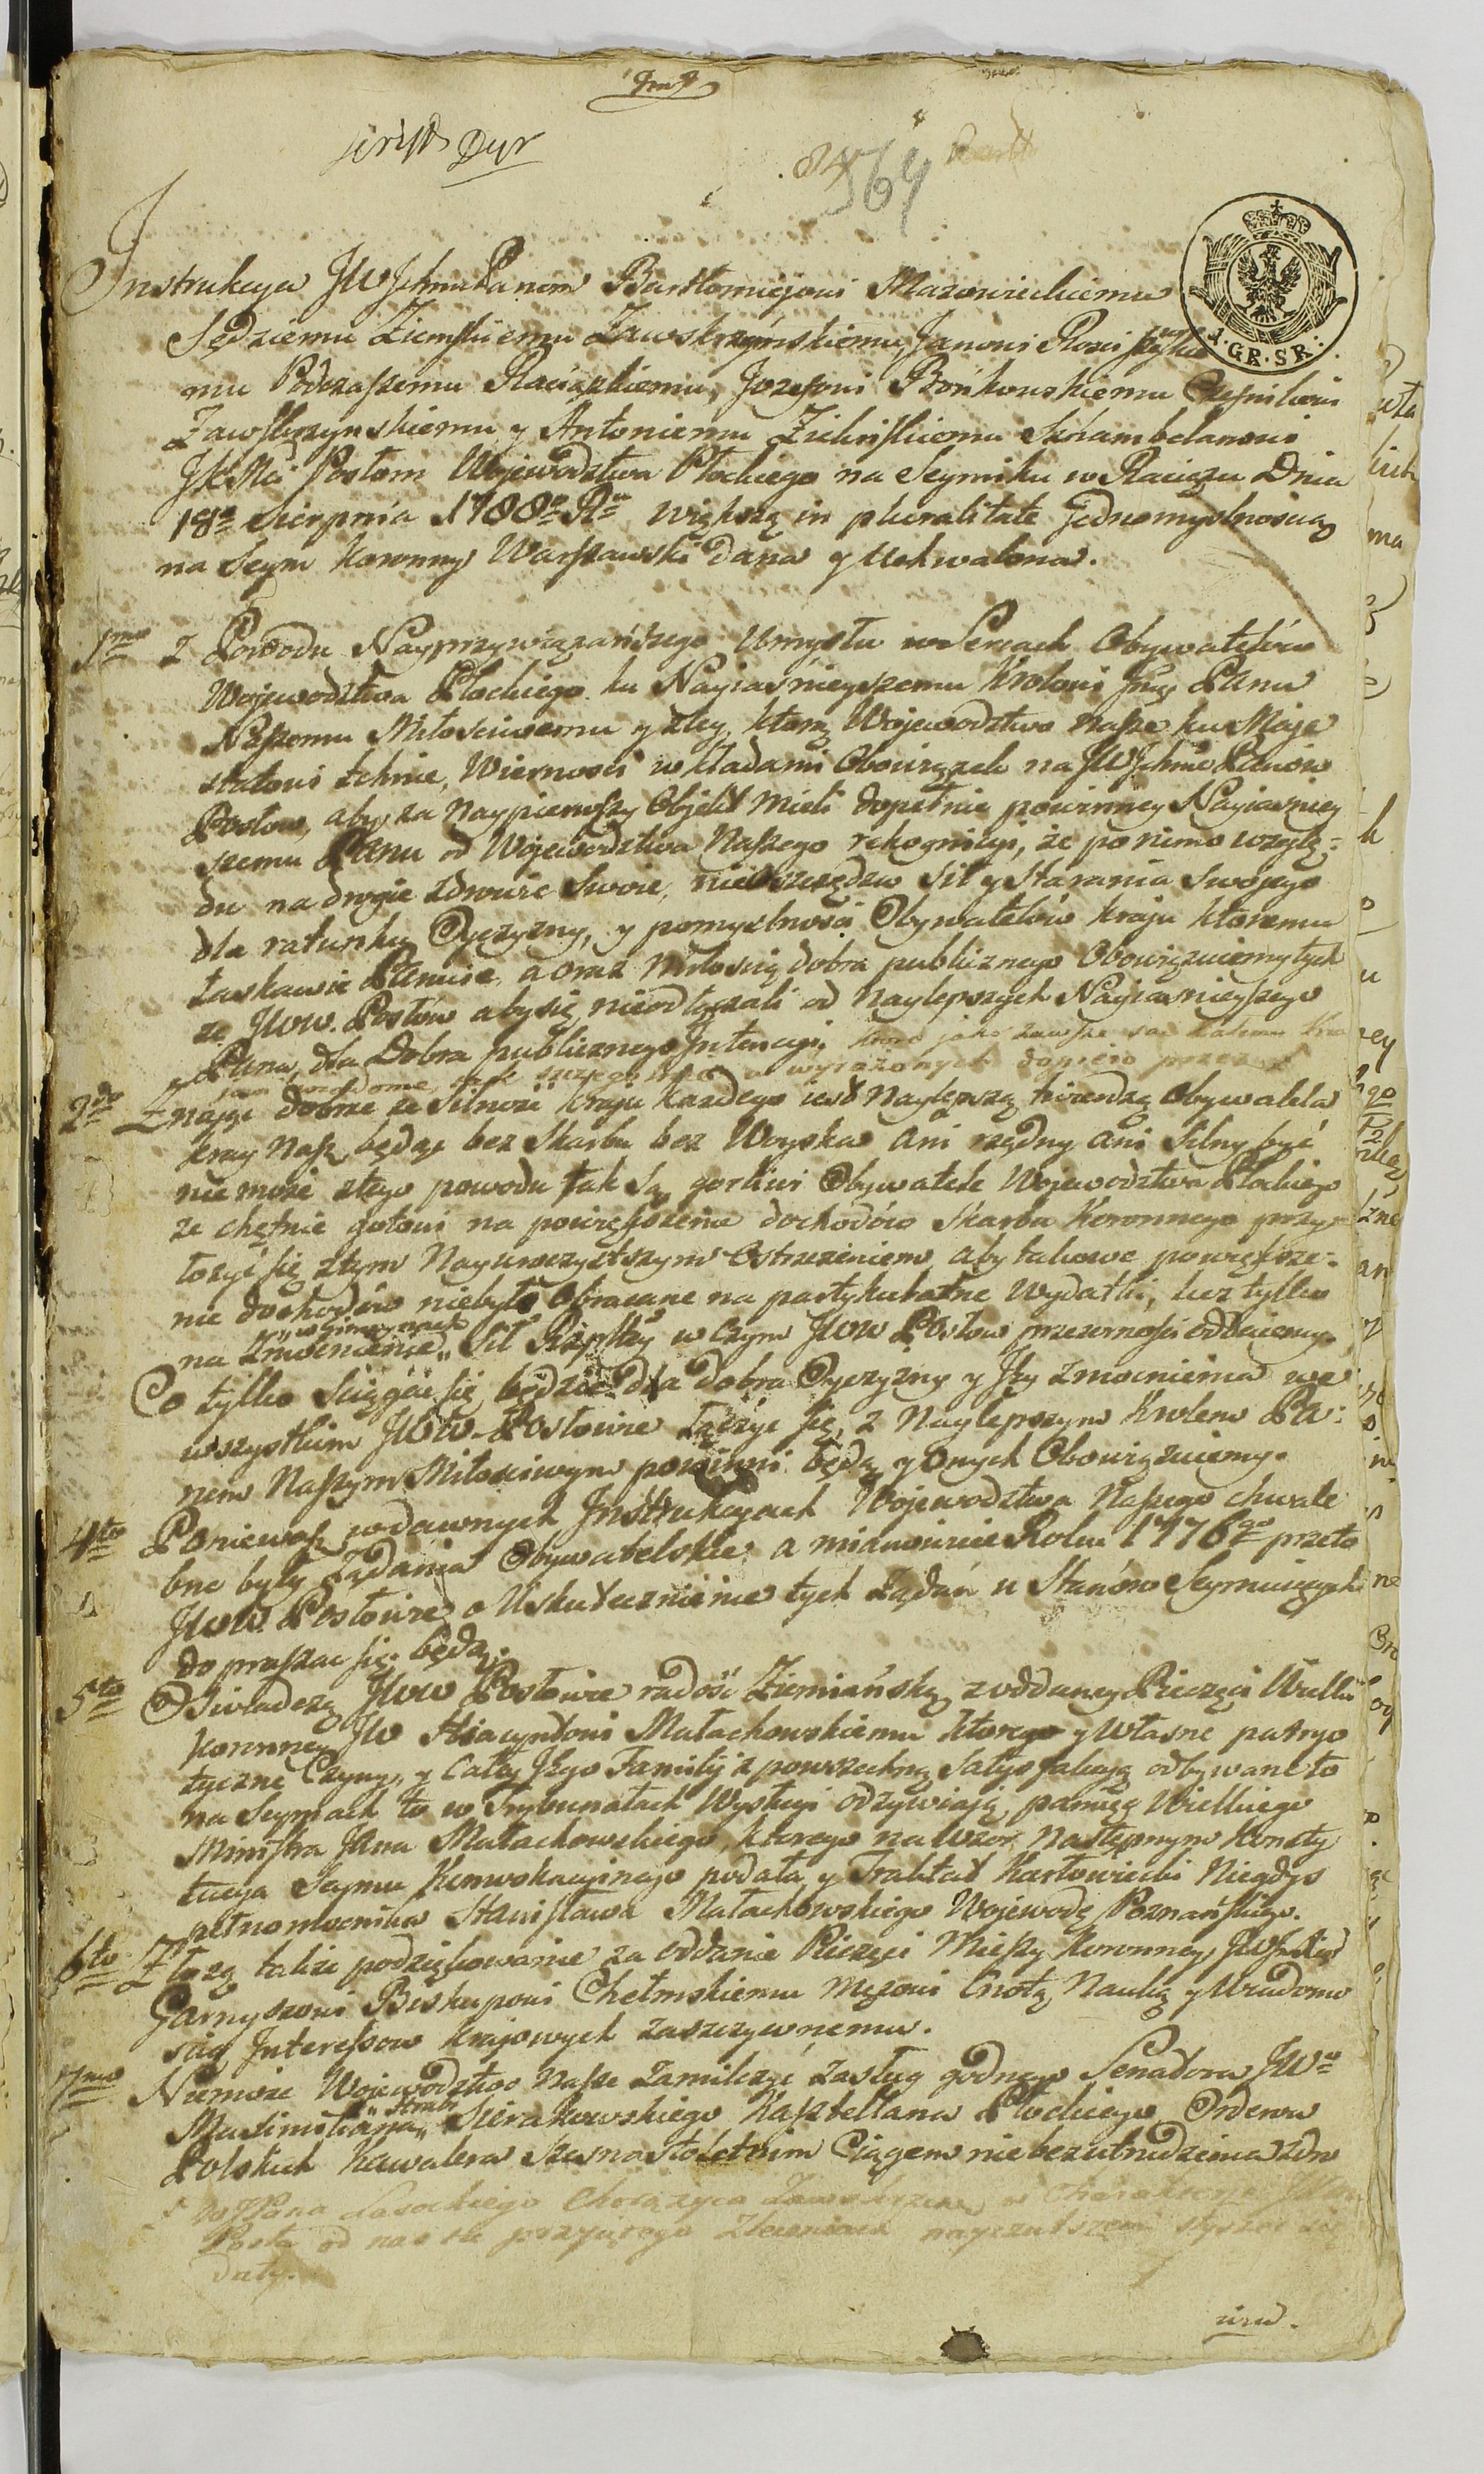 564
1. GR. SR:
Instrukcya JW Jchmć Panom Bartłomiejowi Mazowieckiemu
Sędziemu Ziemskiemu Zawskrzyńskiemu, Janowi
mu Podczaszemu Raciązkiemu, Jozefowi Bońkowskiemu Cześnikowi
Zawskrzynskiemu y Antoniemu Zielinskiemu Szambelanowi
JKMci Posłom Wojewodztwa Płockiego na Seymiku w Raciążu Dnia
18o Sierpnia 1788o Ru większą in pluralitate Jednomyslnoscią
na Seym koronny Warszawski dana y Uchwalona.
1mo Z Powodu Nayprzywiązańszego Umysłu w Sercach Obywatelów
Wojewodztwa Płockiego ku Nayiaśnieyszemu Krolowi Jmci Panu
Naszemu Miłosciwemu y z tey, ktorą Wojewodztwo nasze ku Maje
statowi tchnie, Wiernosci wkładami Obowiązek na JW Jchmć Panów
Posłow, aby za naypierwszy Objekt mieli dopełnić powinney Nayiasniey
szemu Panu od Wojewodztwa Naszego rekognicyi, że pomimo wzglę-
du na drogie zdrowie Swoie, nieoszczędza Sił y Starania Swojego
dla ratunku Oyczyzny, y pomyslności Obywatelów kraju ktoremu
łaskawie Panuie, a oraz miłoscią dobra publicznego Obowiązuiemy tych
że JWW. Posłów aby się nieodłączali od naylepszych Nayiasnieyszego
Pana, dla Dobra publicznego Jntencyi, ktore jako zawsze są całemu Kra
wyrażonych dopiero przez
2do Znając dobrze że Silność kraju każdego iest naylepszą twierdzą Obywatela
kray nasz będąc bez Skarbu bez Woyska ani rządny ani Silny być
nie może z tego powodu tak są gorliwi Obywatele Wojewodztwa Płockiego
że chętnie gotowi na powiększenie dochodów Skarbu Koronnego przy
łożyć się z tym Nayuroczystszym Ostrzeżeniem aby takowe powiększe-
nie dochodów niebyło Obracane na partykularne Wydatki, lecz tylko
na Zmocnienie Sił Rzpltey w czym JWW Posłow przezorności oddaiemy.
Co tylko Sciągać się będzie dla dobra Oyczyzny y Jey zmocnienia we
wszystkim JWW. Posłowie łączyć się z Naylepszym Krolem Pa-
nem Naszym Miłosciwym powinni będą y Onych Obowiązuiemy.
4to Poniewasz w dawnych Jnstrukcyach Wojewodztwa Naszego chwale
bne były Ządania Obywatelskie a mianowicie Roku 1776go przeto
JWW. Posłowie o Uskutecznienie tych Ządań u Stanów Seymuiących
dopraszac się będą.
5to Oswiadczą JWW Posłowie radość Ziemiańską z oddaney Pieczęci Wielkiey
koronney JW Hiacyntowi Małachowskiemu ktorego y własne patryo
tyczne Czyny, y Całey Jego Familij z powszechną Satysfakcyą odbywane to
na Seymach to w Trybunałach Wysługi odzywiają pamięć Wielkiego
Ministra Jana Małachowskiego, ktorego na wzor następnym Konsty
tucya Seymu Konwokacyinego podała y Traktat Karłowiecki Niegdys
pełnomocnika Stanisława Małachowskiego Wojewodę Poznańskiego.
6to Złożą także podziękowanie za oddanie Pieczęci Mieyszey koronney
Garnyszowi Biskupowi Chełmskiemu Mężowi Cnotą Nauką y Wiadomo
scią Jnteressow krajowych zaszczyconemu.
7mo Niemoże Wojewodztwo nasze zamilczyć zasług godnego Senatora JWo
Maximiliana Hrabi Sierakowskiego Kasztellana Płockiego Orderow
Polskich Kawalera szesnastoletnim Ciągiem nie bez utrudzenia zdro
WJPana Lasockiego Chorążyca Zawskrzyn w Charakterze
Posła od nas
dały.